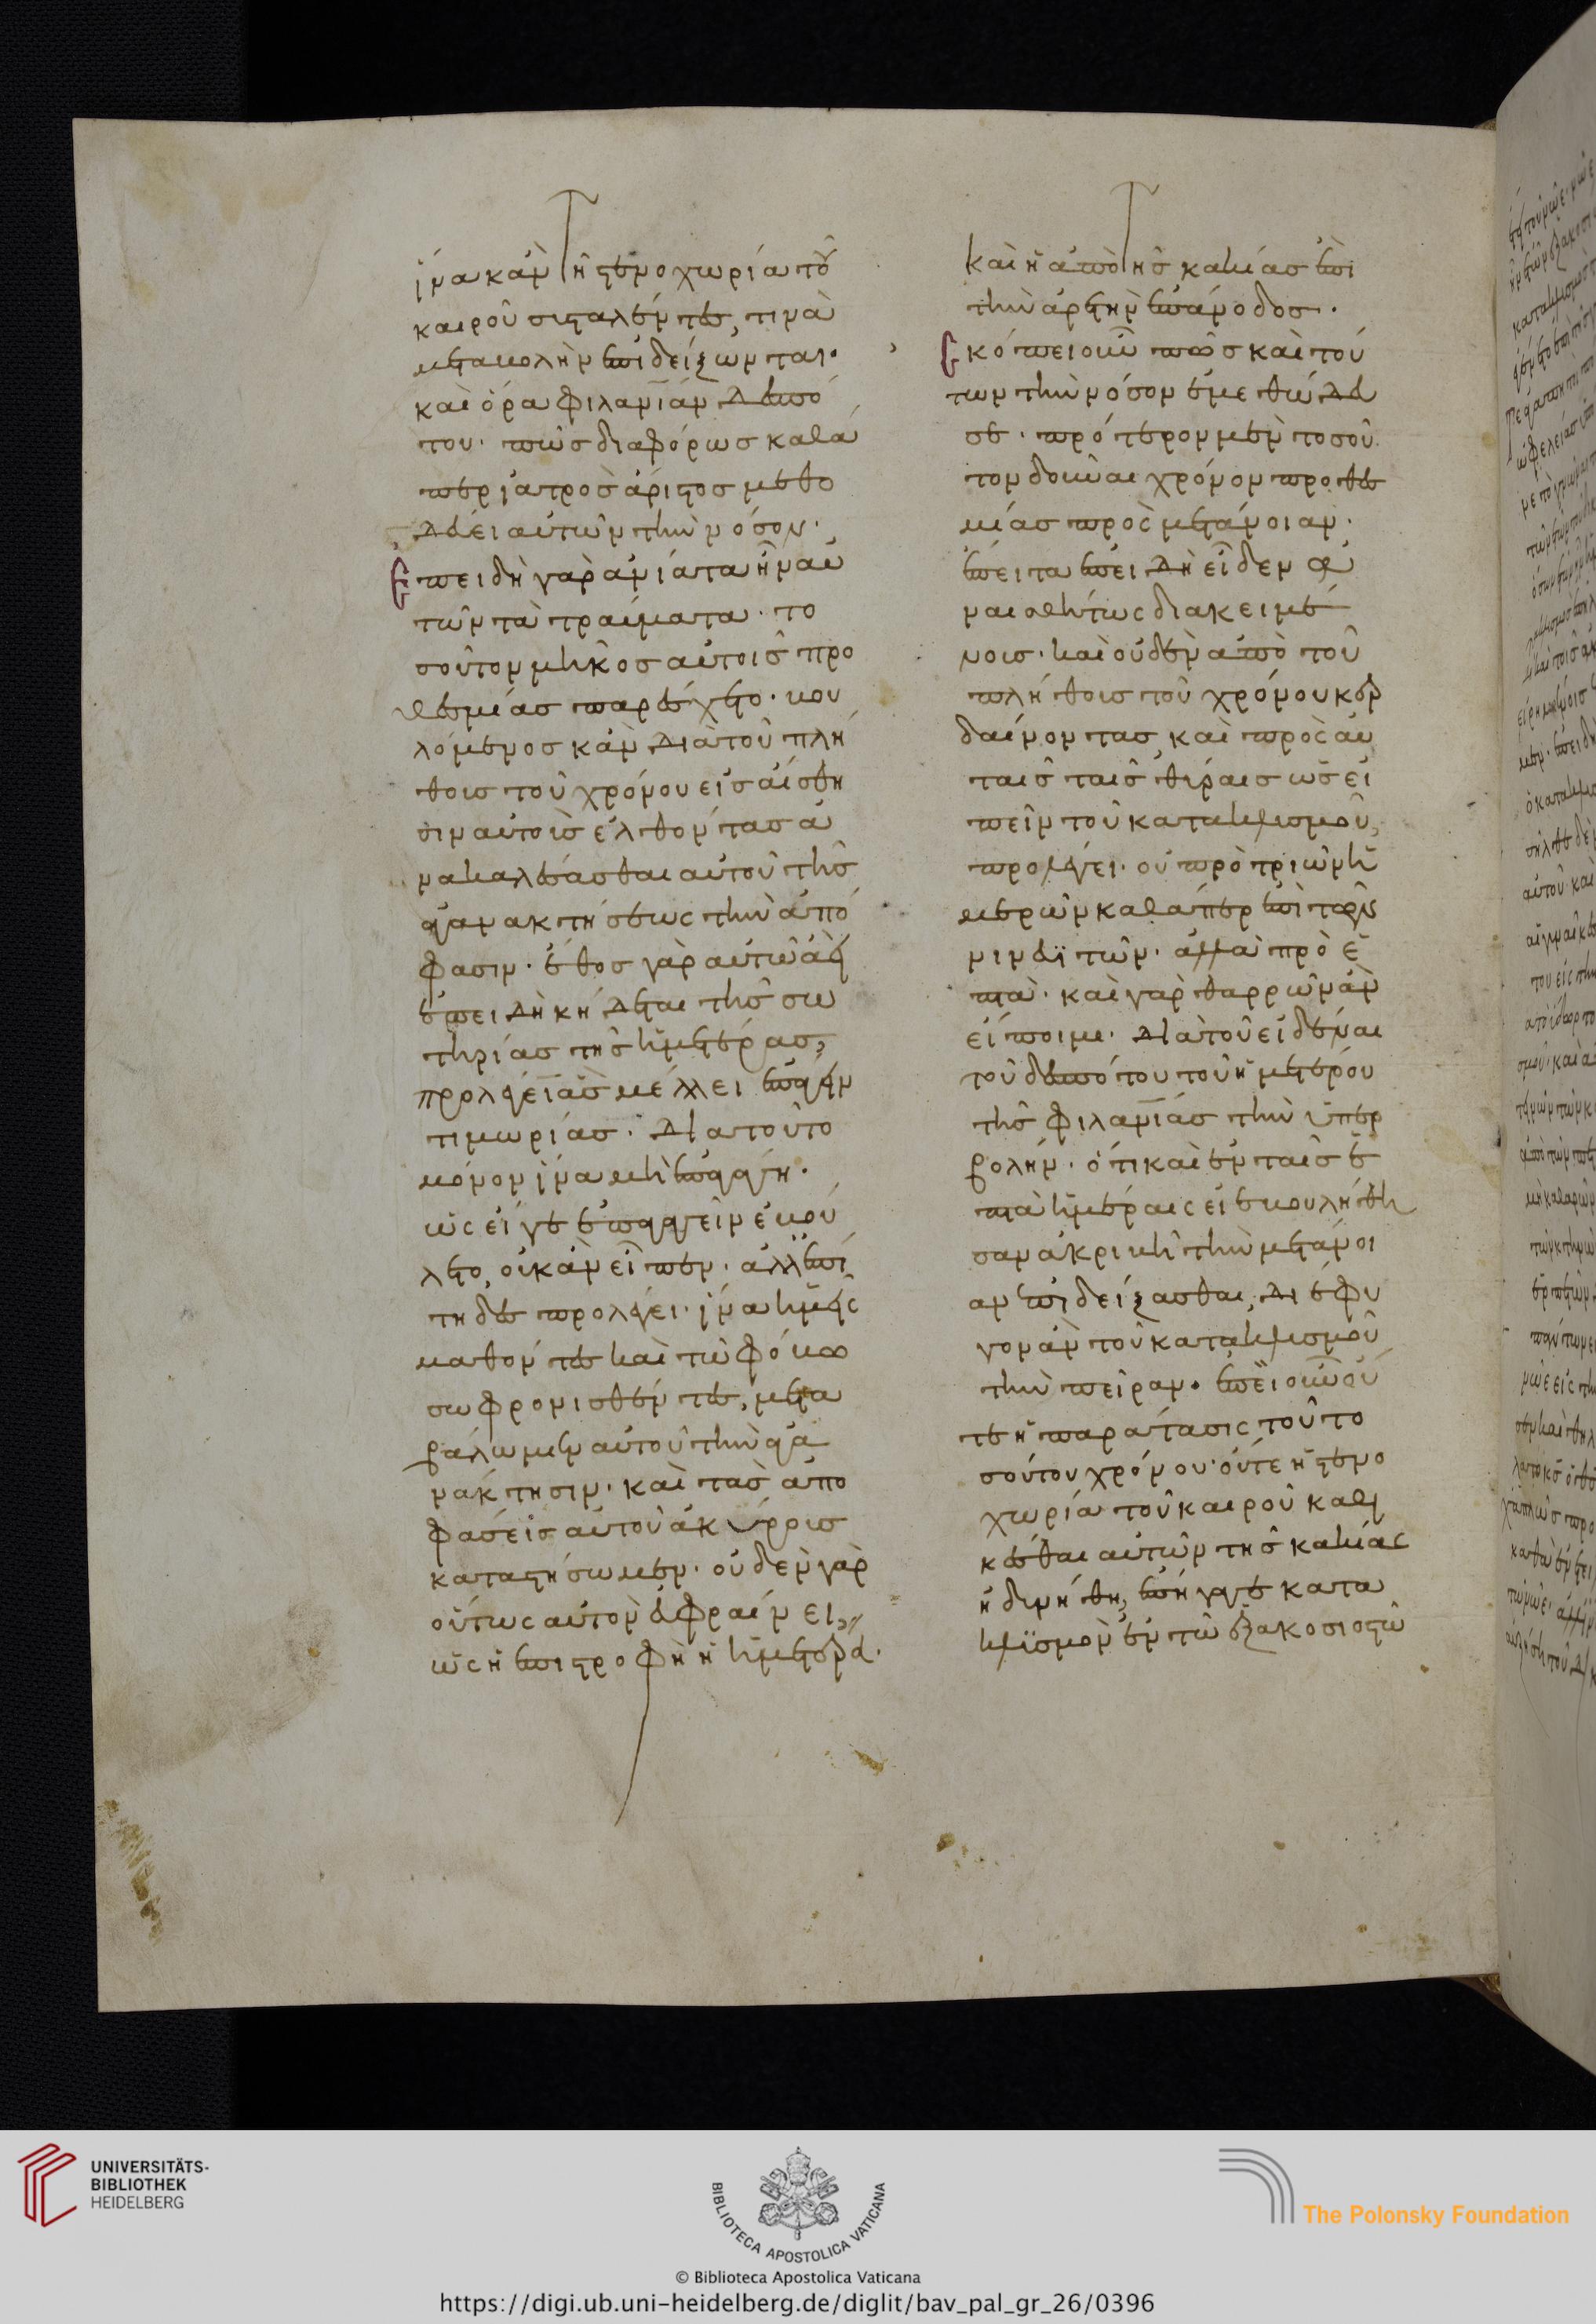 ἵνα κἂν τῆ στενοχωρία τοῦ
καιροῦ συσταλέντες, τινὰ
μεταβολὴν ἐπιδείξωνται·
καὶ ὅρα φιλανίαν δεσπό
του· πῶς διαφόρως καθά
περ ἰατρὸς ἄριστος μεθο
δεύει αὐτῶν τὴν νόσον·
Ἐπειδὴ γὰρ ἀνίατα ἦν αὐ
τῶν τὰ τραύματα· το
σοῦτον μῆκος αὐτοῖς προ
θεσμίας παρέσχετο· βου
λόμενος κἂν διὰ τοῦ πλή
θους τοῦ χρόνου εἰς αἴσθη
σιν αὐτοὺς ἐλθόντας ἀ
νακαλέσασθαι αὐτοῦ τῆς
ἀγανακτήσεως τὴν ἀπό
φασιν· ἔθος γὰρ αὐτῶ ἀεὶ
ἐπειδὴ κήδεται τῆς σω
τηρίας τῆς ἡμετέρας,
προλέγει ἃς μέλλει ἐπάγειν
τιμωρίας· διὰ τοῦτο
μόνον ἵνα μὴ ἐπαγάγη·
ὡς εἴ γε ἐπαγαγεῖν ἐβού
λετο, οὐκ ἂν εἶπεν· ἀλλ' ἐπί
τηδες προλέγει· ἵνα ἡμεῖς
μαθόντες καὶ τῶ φόβω
σωφρονισθέντες, μετα
βάλωμεν αὐτοῦ τὴν ἀγα
νάκτησιν· καὶ τὰς ἀπο
φάσεις αὐτοῦ ἀκύρους
καταστήσωμεν· οὐδὲν γὰρ
οὕτως αὐτὸν εὐφραίνει,
ὡς ἡ ἐπιστροφὴ ἡ ἡμετέρα·
καὶ ἡ ἀπὸ τῆς κακίας ἐπὶ
τὴν ἀρετὴν ἐπάνοδος·
Σκόπει οὖν πῶς καὶ τού
των τὴν νόσον ἐμεθώδευ
σε· πρότερον μὲν τοσοῦ
τον δοῦναι χρόνον προθεσ
μίας πρὸς μετάνοιαν·
ἔπειτα ἐπειδὴ εἶδεν ἀ
ναισθήτως διακειμέ
νους· καὶ οὐδὲν ἀπὸ τοῦ
πλήθους τοῦ χρόνου κερ
δαίνοντας, καὶ πρὸς αὐ
ταῖς ταῖς θύραις ὡς εἰ
πεῖν τοῦ κατακλυσμοῦ,
προλέγει· οὐ πρὸ τριῶν ἡ
μερῶν καθάπερ ἐπὶ τῶν
νινευϊτῶν· ἀλλὰ πρὸ ἑ
πτά· καὶ γὰρ θαρρῶν ἂν
εἴποιμι· διὰ τοῦ εἰδέναι
τοῦ δεσπότου τοῦ ἡμετέρου
τῆς φιλανίας τὴν ὑπερ
βολήν· ὅτι καὶ ἐν ταῖς ἑ
πτὰ ἡμέραις εἰ ἐβουλήθη
σαν ἀκριβῆ τὴν μετάνοι
αν ἐπιδείξασθαι, διέφυ
γον ἂν τοῦ κατακλυσμοῦ
τὴν πεῖραν· ἐπεὶ οὖν οὔ
τε ἡ παράτασις τοῦ το
σούτου χρόνου· οὔτε ἡ στενο
χωρία τοῦ καιροῦ καθι
κέσθαι αὐτῶν τῆς κακίας
ἠδυνήθη, ἐπήγαγε κατα
κλϋσμὸν ἐν τῶ ἑξακοσιοστῶ
UNIVERSITÄTS-
BIBLIOTHEK
HEIDELBERG
BIBLIOTECA APOSTOLICA VATICANA
© Biblioteca Apostolica Vaticana
The Polonsky Foundation
https://digi.ub.uni-heidelberg.de/diglit/bav_pal_gr_26/0396